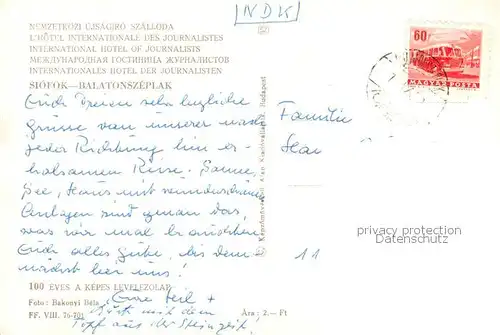 NDK
NEMZETKÖZI ÚJSÁGIRÓ SZÁLLODA
L'HÔTEL INTERNATIONALE DES JOURNALISTES
INTERNATIONAL HOTEL OF JOURNALISTS
МЕЖДУНАРОДНАЯ ГОСТИНИЦА ЖУРНАЛИСТОВ
INTERNATIONALES HOTEL DER JOURNALISTEN
SIÓFOK—BALATONSZÉPLAK
60
MAGYAR POSTA
Euch Ihnen sehr herzliche
Grüsse von unserer nach
jeder Richtung hin er-
holsamen Reise. Sonne,
See, Haus mit wunderschönen
Anlagen sind genau das,
was wir mal brauchten.
Euch alles Gute, bis dem-
nächst bei uns!
Familie
11
100 ÉVES A KÉPES LEVELEZŐLAP
Foto: Bakonyi Béla
FF. VIII. 76-701
Ára: 2.— Ft
Topf aus der Steinzeit
Képzőművészeti Alap Kiadóvállalata, Budapest
privacy protection
Datenschutz